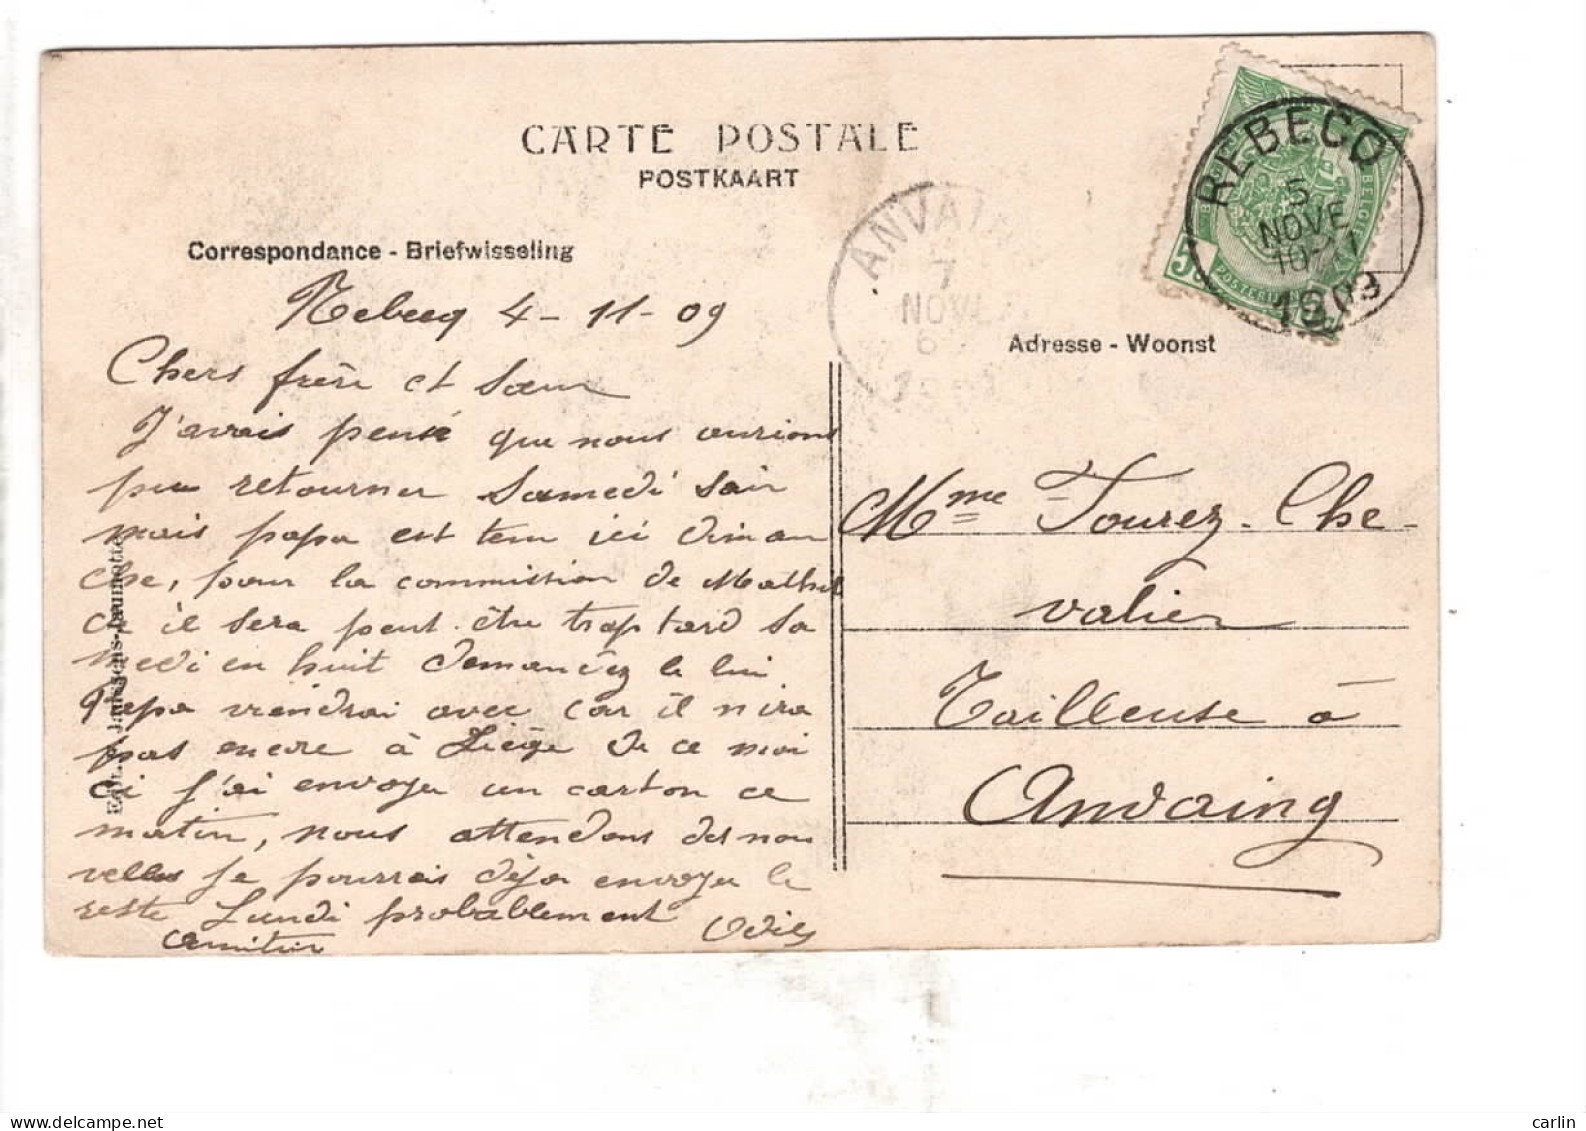 CARTE POSTALE
POSTKAART
Correspondance - Briefwisseling
Rebecq 4 - 11 - 09
Chers frère et Sœur
J'avais pensé que nous aurions
pu retourner Samedi soir
mais papa est tenu ici diman
che, pour la commission de
Ce il sera peut être trop tard Sa
medi en huit demandez le lui
Papa viendrai avec car il n'ira
pas encore à Liège de ce moi
ci j'ai envoyer un carton ce
matin, nous attendons des nou
velles je pourrais déjà envoyer le
reste Lundi probablement
REBECQ
5
NOVE
10-11
1909
ANVAIN
7
NOVE
Adresse - Woonst
Mme Tourez-Che-
valier
Tailleuse à
Anvaing
5c
BELGIE
carlin
delcampe.net